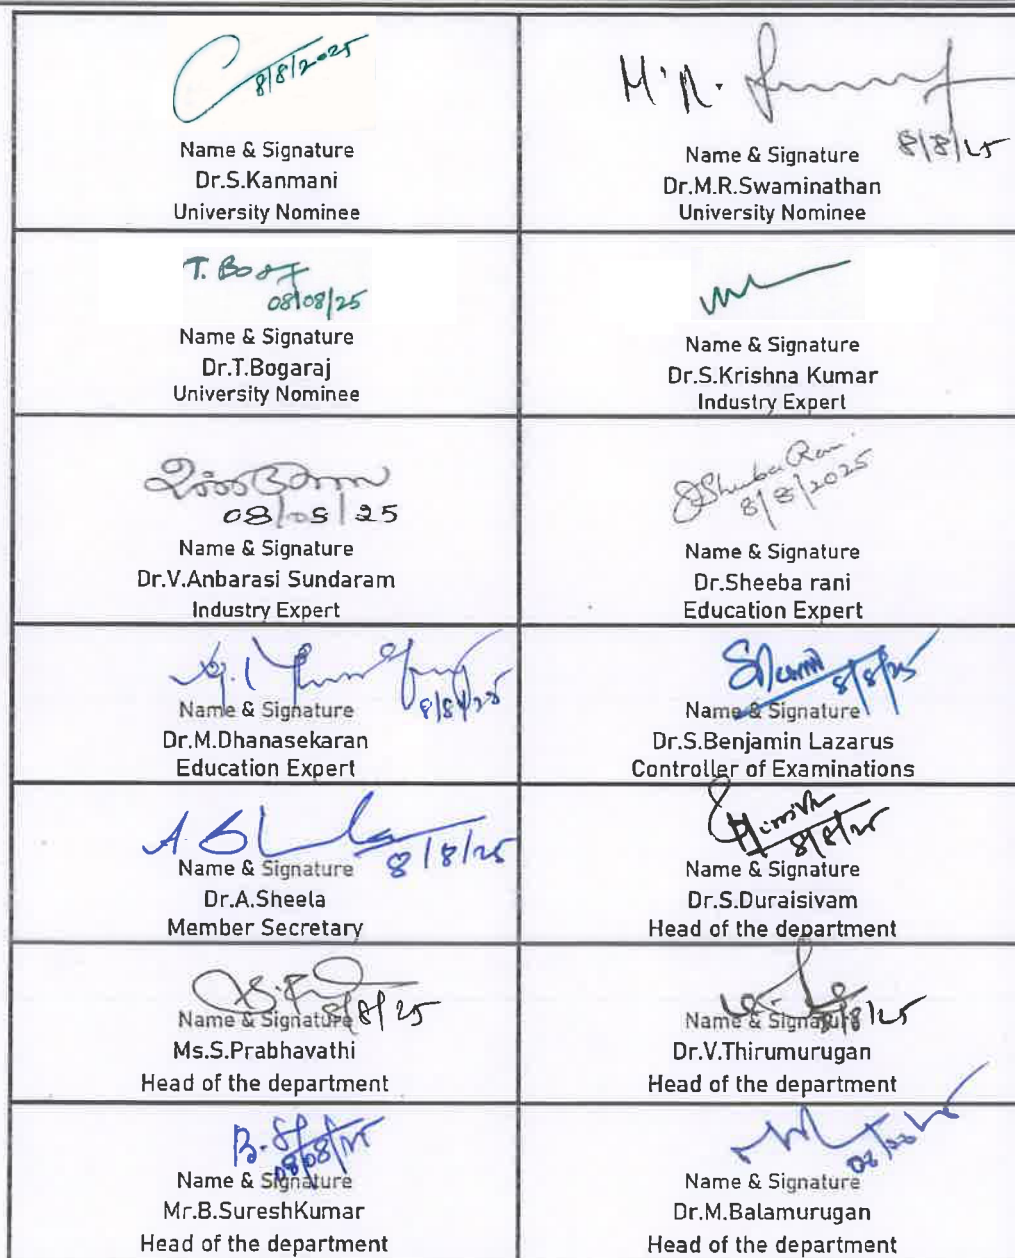 8/8/2025
Name & Signature
Dr.S.Kanmani
University Nominee
M.R.
8/8/25
Name & Signature
Dr.M.R.Swaminathan
University Nominee
T. Bog
08/08/25
Name & Signature
Dr.T.Bogaraj
University Nominee
Name & Signature
Dr.S.Krishna Kumar
Industry Expert
08/08/25
Name & Signature
Dr.V.Anbarasi Sundaram
Industry Expert
Sheeba Rani
8/8/2025
Name & Signature
Dr.Sheeba rani
Education Expert
8/8/25
Name & Signature
Dr.M.Dhanasekaran
Education Expert
8/8/25
Name & Signature
Dr.S.Benjamin Lazarus
Controller of Examinations
8/8/25
Name & Signature
Dr.A.Sheela
Member Secretary
8/8/25
Name & Signature
Dr.S.Duraisivam
Head of the department
8/8/25
Name & Signature
Ms.S.Prabhavathi
Head of the department
8/8/25
Name & Signature
Dr.V.Thirumurugan
Head of the department
08/08/25
Name & Signature
Mr.B.SureshKumar
Head of the department
Name & Signature
Dr.M.Balamurugan
Head of the department